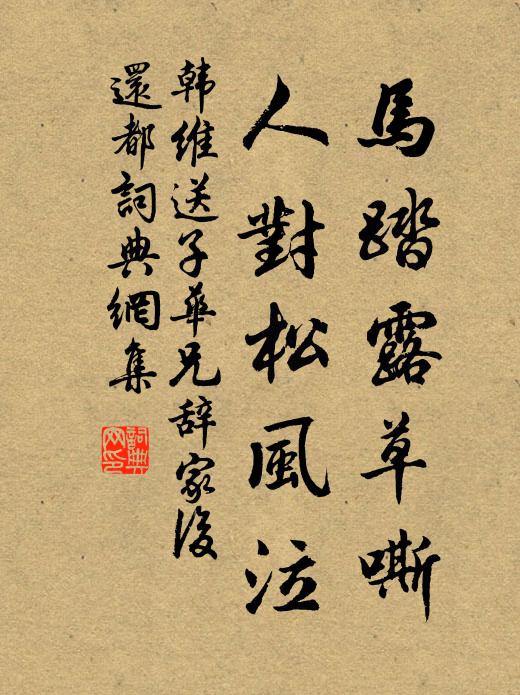 馬踏露草嘶
人對松風泣
韩維送子華兄辞家後
還都詞典網集
詞典网印